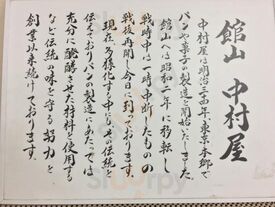 館山 中村屋
中村屋は明治三十四年、東京本郷で
パンや菓子の製造を開始いたしました。
館山へは昭和二年に移転し
戦時中は一時中断したものの
戦後再開し今日に到っております。
現在多様化する中にもその伝統を
伝えておりパンの製造にあたっては
充分に醗酵させた材料を使用する
など伝統の味を守る努力を
創業以来続けております。